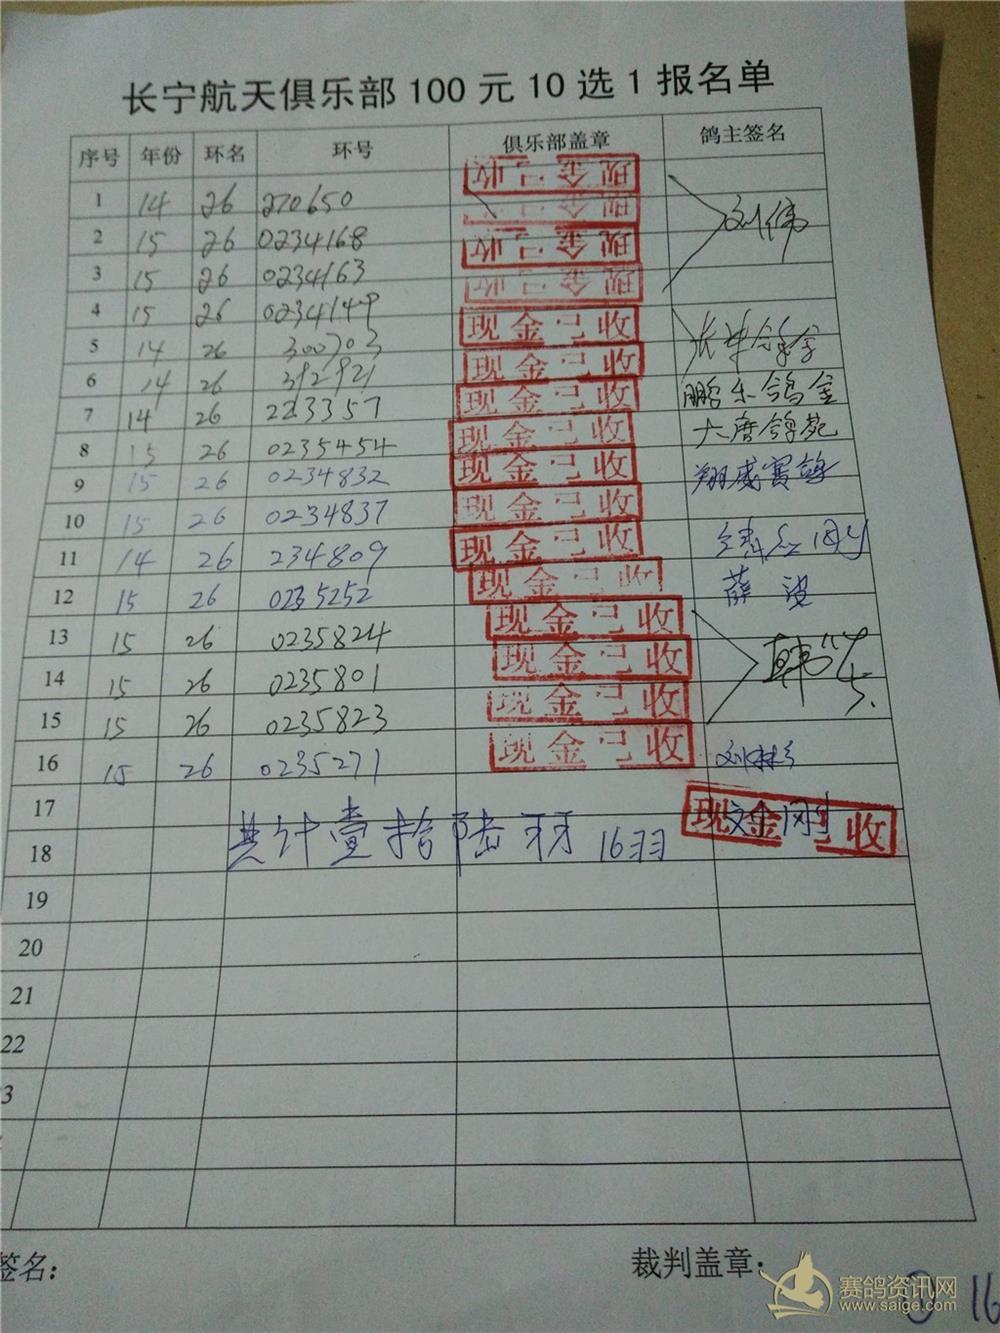 长宁航天俱乐部 100 元 10 选 1 报名单
序号 年份 环名 环号 俱乐部盖章 鸽主签名
1 14 26 220650 现金已收 刘伟
2 15 26 0234168 现金已收
3 15 26 0234163 现金已收
4 15 26 0234149 现金已收
5 14 26 300703 现金已收
6 14 26 392921 现金已收
7 14 26 223357 现金已收 鹏乐鸽舍
8 15 26 0235454 现金已收 大唐鸽苑
9 15 26 0234832 现金已收 翔威赛鸽
10 15 26 0234837 现金已收
11 14 26 234809 现金已收
12 15 26 0235252 现金已收 薛波
13 15 26 0235824 现金已收
14 15 26 0235801 现金已收
15 15 26 0235823 现金已收
16 15 26 0235271 现金已收
17 现金已收
18 共计壹拾陆羽 16羽
19
20
21
22
3
签名：
裁判盖章：
赛鸽资讯网
www.saige.com
16